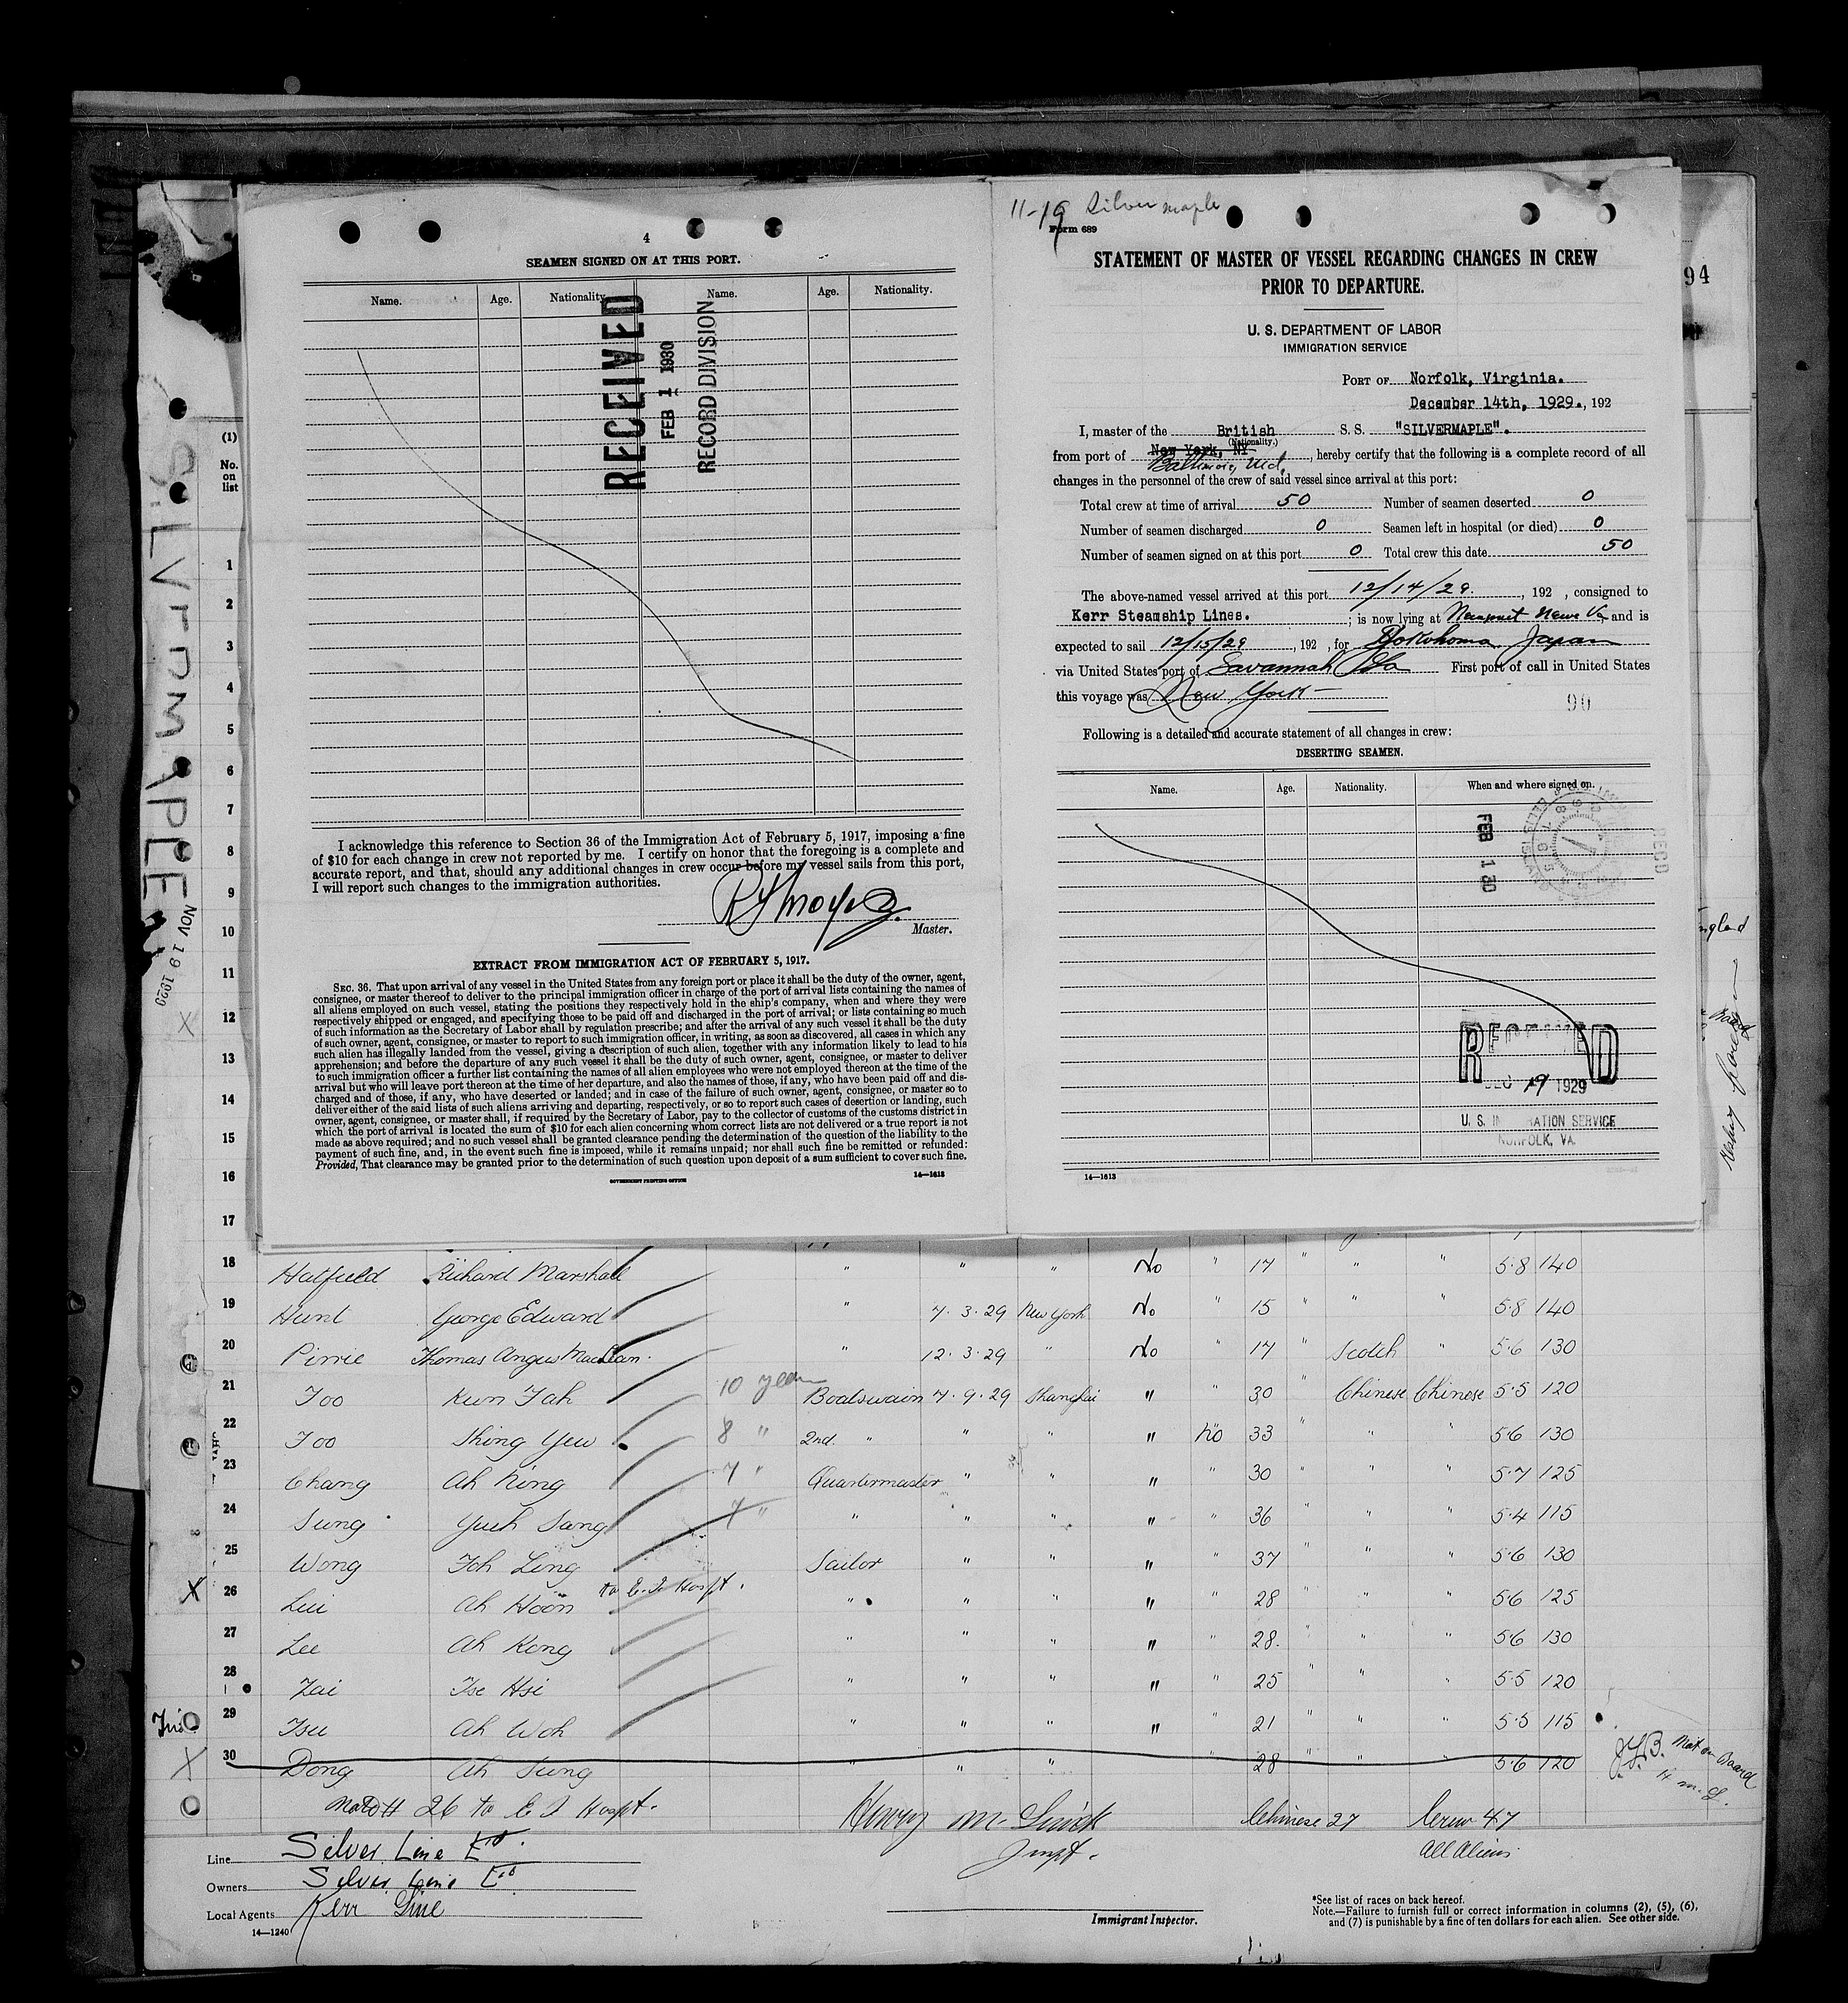 4
SEAMEN SIGNED ON AT THIS PORT.
Name. Age. Nationality. Name. Age. Nationality.
RECEIVED
FEB 1 1930
RECORD DIVISION
I acknowledge this reference to Section 36 of the Immigration Act of February 5, 1917, imposing a fine
of $10 for each change in crew not reported by me. I certify on honor that the foregoing is a complete and
accurate report, and that, should any additional changes in crew occur before my vessel sails from this port,
I will report such changes to the immigration authorities.
Master.
EXTRACT FROM IMMIGRATION ACT OF FEBRUARY 5, 1917.
SEC. 36. That upon arrival of any vessel in the United States from any foreign port or place it shall be the duty of the owner, agent,
consignee, or master thereof to deliver to the principal immigration officer in charge of the port of arrival lists containing the names of
all aliens employed on such vessel, stating the positions they respectively hold in the ship's company, when and where they were
respectively shipped or engaged, and specifying those to be paid off and discharged in the port of arrival; or lists containing so much
of such information as the Secretary of Labor shall by regulation prescribe; and after the arrival of any such vessel it shall be the duty
of such owner, agent, consignee, or master to report to such immigration officer, in writing, as soon as discovered, all cases in which any
such alien has illegally landed from the vessel, giving a description of such alien, together with any information likely to lead to his
apprehension; and before the departure of any such vessel it shall be the duty of such owner, agent, consignee, or master to deliver
to such immigration officer a further list containing the names of all alien employees who were not employed thereon at the time of the
arrival but who will leave port thereon at the time of her departure, and also the names of those, if any, who have been paid off and dis-
charged and of those, if any, who have deserted or landed; and in case of the failure of such owner, agent, consignee, or master so to
deliver either of the said lists of such aliens arriving and departing, respectively, or so to report such cases of desertion or landing, such
owner, agent, consignee, or master shall, if required by the Secretary of Labor, pay to the collector of customs of the customs district in
which the port of arrival is located the sum of $10 for each alien concerning whom correct lists are not delivered or a true report is not
made as above required; and no such vessel shall be granted clearance pending the determination of the question of the liability to the
payment of such fine, and, in the event such fine is imposed, while it remains unpaid; nor shall such fine be remitted or refunded:
Provided, That clearance may be granted prior to the determination of such question upon deposit of a sum sufficient to cover such fine.
GOVERNMENT PRINTING OFFICE 14—1613
11-19 Silver maple
Form 689
STATEMENT OF MASTER OF VESSEL REGARDING CHANGES IN CREW
PRIOR TO DEPARTURE.
U. S. DEPARTMENT OF LABOR
IMMIGRATION SERVICE
PORT OF Norfolk, Virginia.
December 14th, 1929., 192
I, master of the British S. S. "SILVERMAPLE".
(Nationality.)
from port of New York, NY Baltimore, Md, , hereby certify that the following is a complete record of all
changes in the personnel of the crew of said vessel since arrival at this port:
Total crew at time of arrival 50 Number of seamen deserted 0
Number of seamen discharged 0 Seamen left in hospital (or died) 0
Number of seamen signed on at this port 0 Total crew this date 50
The above-named vessel arrived at this port 12/14/29. , 192 , consigned to
Kerr Steamship Lines. ; is now lying at Newport News Va and is
expected to sail 12/15/29 , 192 , for Yokohoma Japan
via United States port of Savannah Ga First port of call in United States
this voyage was New York
90
Following is a detailed and accurate statement of all changes in crew:
DESERTING SEAMEN.
Name. Age. Nationality. When and where signed on.
FEB 1 30
RECD
RECEIVED
DEC 19 1929
U. S. IMMIGRATION SERVICE
NORFOLK, VA.
14—1613
94
SILVERMAPLE
NOV 19 1929
(1)
No.
on
list
1
2
3
4
5
6
7
8
9
10
11
12
13
14
15
16
17
18 Hatfield Richard Marshall " " " No " 17 " " " 5.8 140
19 Hunt George Edward " 7.3.29 New York No " 15 " " " 5.8 140
20 Pirrie Thomas Angus MacLean. " 12.3.29 " No " 17 " Scotch " 5.6 130
21 Foo Kun Fah 10 years Boatswain 7.9.29 Shanghai " " 30 " Chinese Chinese 5.5 120
22 Foo Shing Yew 8 " 2nd. " " " " no 33 " " " 5.6 130
23 Chang Ah Ning 7 " Quartermaster " " " " 30 " " " 5.7 125
24 Sung Yueh Sang 7 " " " " " " 36 " " " 5.4 115
25 Wong Foh Ling Sailor " " " " 37 " " " 5.6 130
26 Lui Ah Hoon to E.I. Hospt. " " " " " 28 " " " 5.6 125
27 Lee Ah Kong " " " " " 28. " " " 5.6 130
28 Zai Tse Hsi " " " " " 25 " " " 5.5 120
29 Tsu Ah Woh " " " " " 21 " " " 5.5 115
30 Dong Ah Sung " " " " 28 " " " 5.6 120
Not on Board
H. m. L.
26 to E I Hospt.
Chinese 27 Crew 47
All Aliens
Line Silver Line Ltd.
Owners Silver Line Ltd
Local Agents Kerr Line
14—1240
Immigrant Inspector.
*See list of races on back hereof.
Note.—Failure to furnish full or correct information in columns (2), (5), (6),
and (7) is punishable by a fine of ten dollars for each alien. See other side.